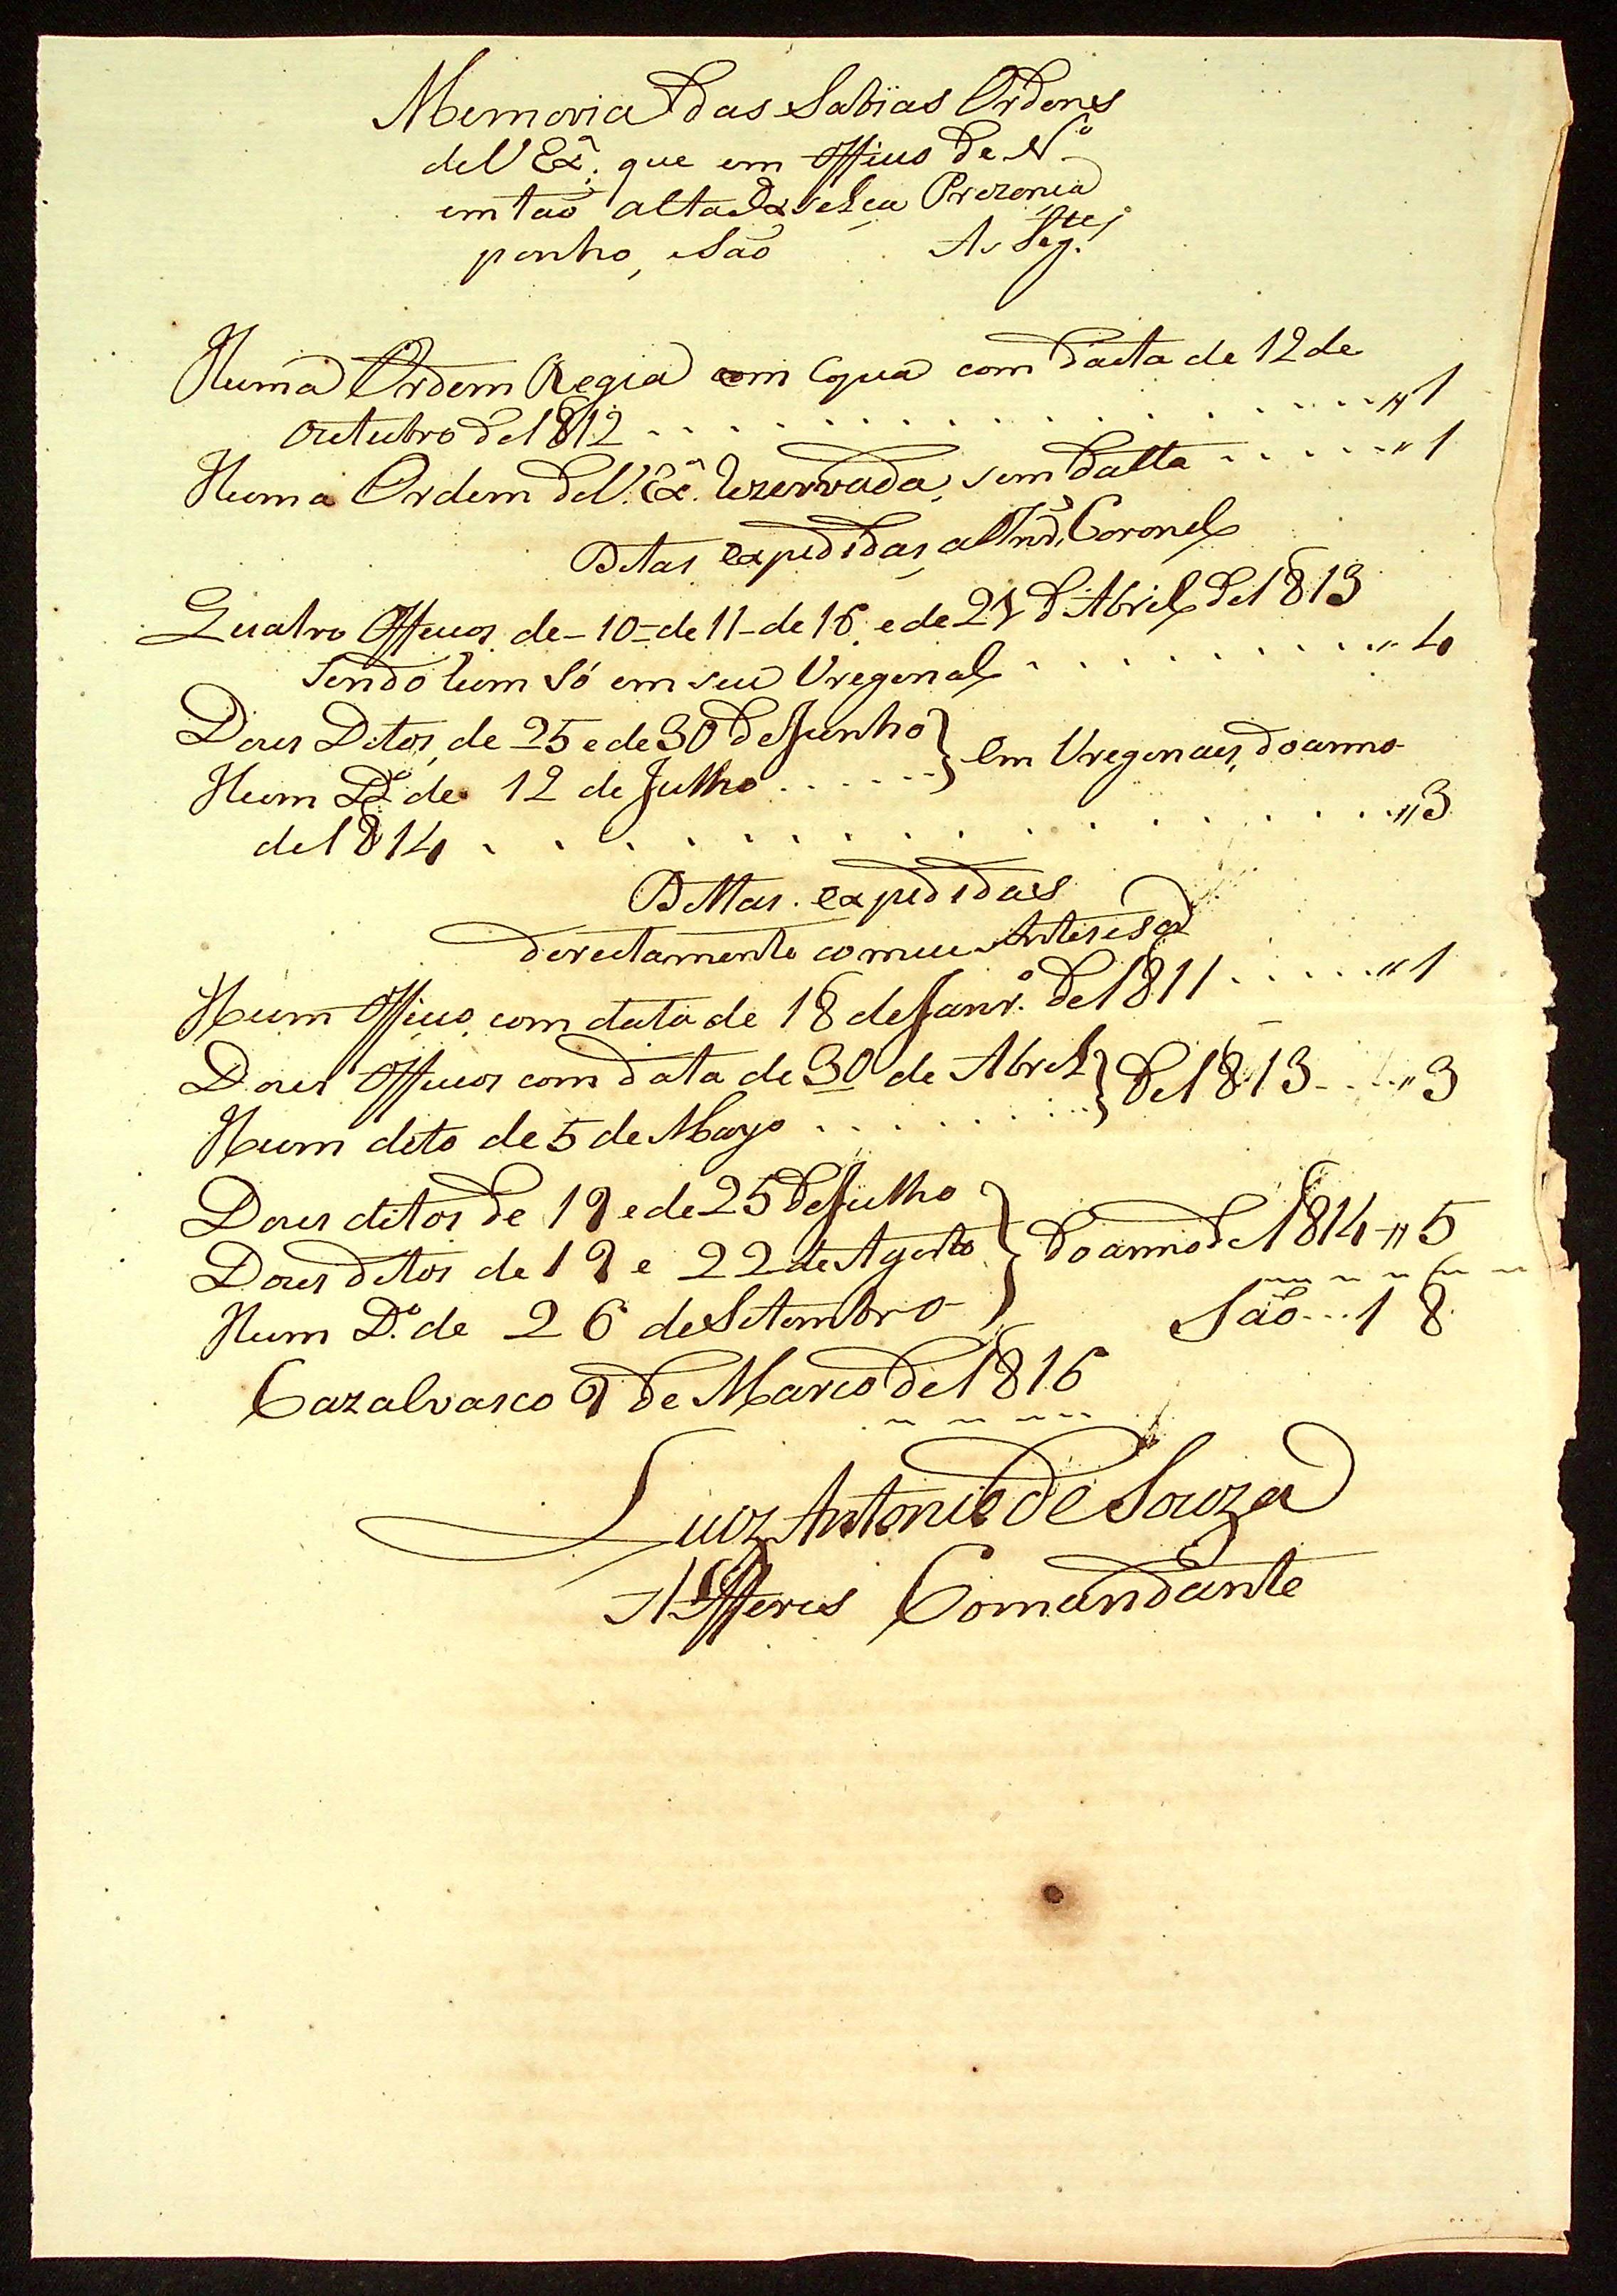 Memoria das Sabias Ordens
de V Exª. que em Officio de Nº
em tão alta Prezencia
ponho, São As Segtes
Huma Ordem Regia com Copia com dacta de 12 de
Outubro de 1812 - - - - - - - - - - - - - - - - " 1
Huma Ordem de V. Exª. Rezervada, sem datta - - - - - - " 1
Ditas expedidas, ao Coronel
Quatro Officios de - 10 - de 11 - de 16 e de 21 d'Abril de 1813
sendo hum Só em seu Uregenal - - - - - - - - - - - " 4
Dous Ditos, de 25 e de 30 de Junho } em Uregenaes, do anno
Hum Dº de 12 de Julho - - - - - }
de 1814 - - - - - - - - - - - - - - - - " 3
Dittas expedidas
derectamente com meu Antesesor
Hum Officio com data de 18 de Janrº. de 1811 - - - - - " 1
Dous Officios com data de 30 de Abril } de 1813 - - - " 3
Hum dito de 5 de Mayo - - - - - - - }
Dous ditos de 19 e de 25 de Julho }
Dous ditos de 19 e 22 de Agosto } do anno de 1814 - " 5
Hum Dº. de 26 de Setembro } São - - - 18
Cazalvasco 9 de Marco de 1816
Luiz Antonio de Souza
Alfferes Comandante